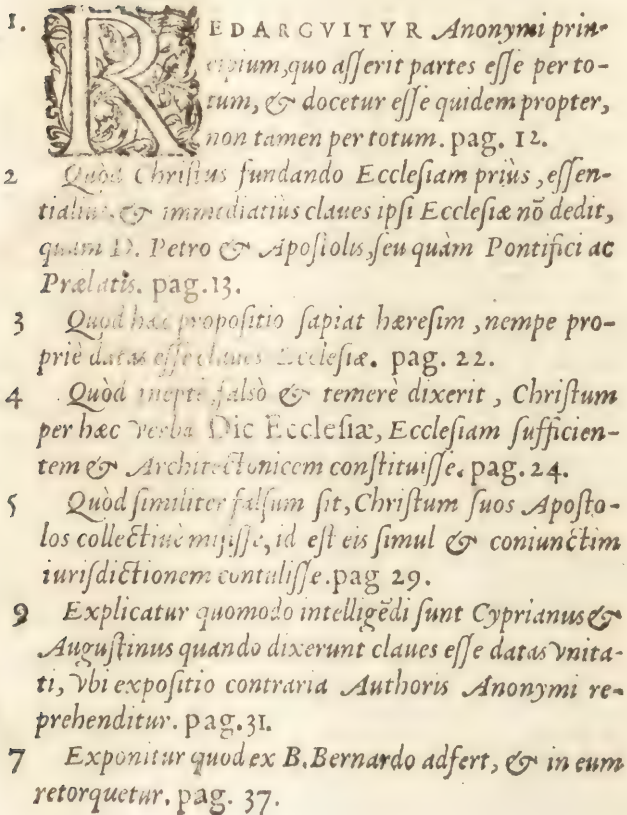 1. REDARGVITVR Anonymi prin-
cipium, quo aſſerit partes eſſe per to-
tum, & docetur eſſe quidem propter,
non tamen per totum. pag. 12.
2 Quòd Chriſtus fundando Eccleſiam priùs, eſſen-
tialius, & immediatiùs claues ipſi Eccleſiæ nõ dedit,
quàm D. Petro & Apoſtolis, ſeu quàm Pontifici ac
Prælatis. pag.13.
3 Quod hæc propoſitio ſapiat hæreſim, nempe pro-
priè datas eſſe claues Eccleſiæ. pag. 22.
4 Quòd ineptè falsò & temerè dixerit, Chriſtum
per hæc verba Dic Eccleſiæ, Eccleſiam ſufficien-
tem & Architectonicem conſtituiſſe. pag. 24.
5 Quòd ſimiliter falſum ſit, Chriſtum ſuos Apoſto-
los collectiuè miſiſſe, id eſt eis ſimul & coniunctim
iuriſdictionem contuliſſe. pag 29.
9 Explicatur quomodo intelligẽdi ſunt Cyprianus &
Auguſtinus quando dixerunt claues eſſe datas vnita-
ti, vbi expoſitio contraria Authoris Anonymi re-
prehenditur. pag.31.
7 Exponitur quod ex B. Bernardo adfert, & in eum
retorquetur. pag. 37.